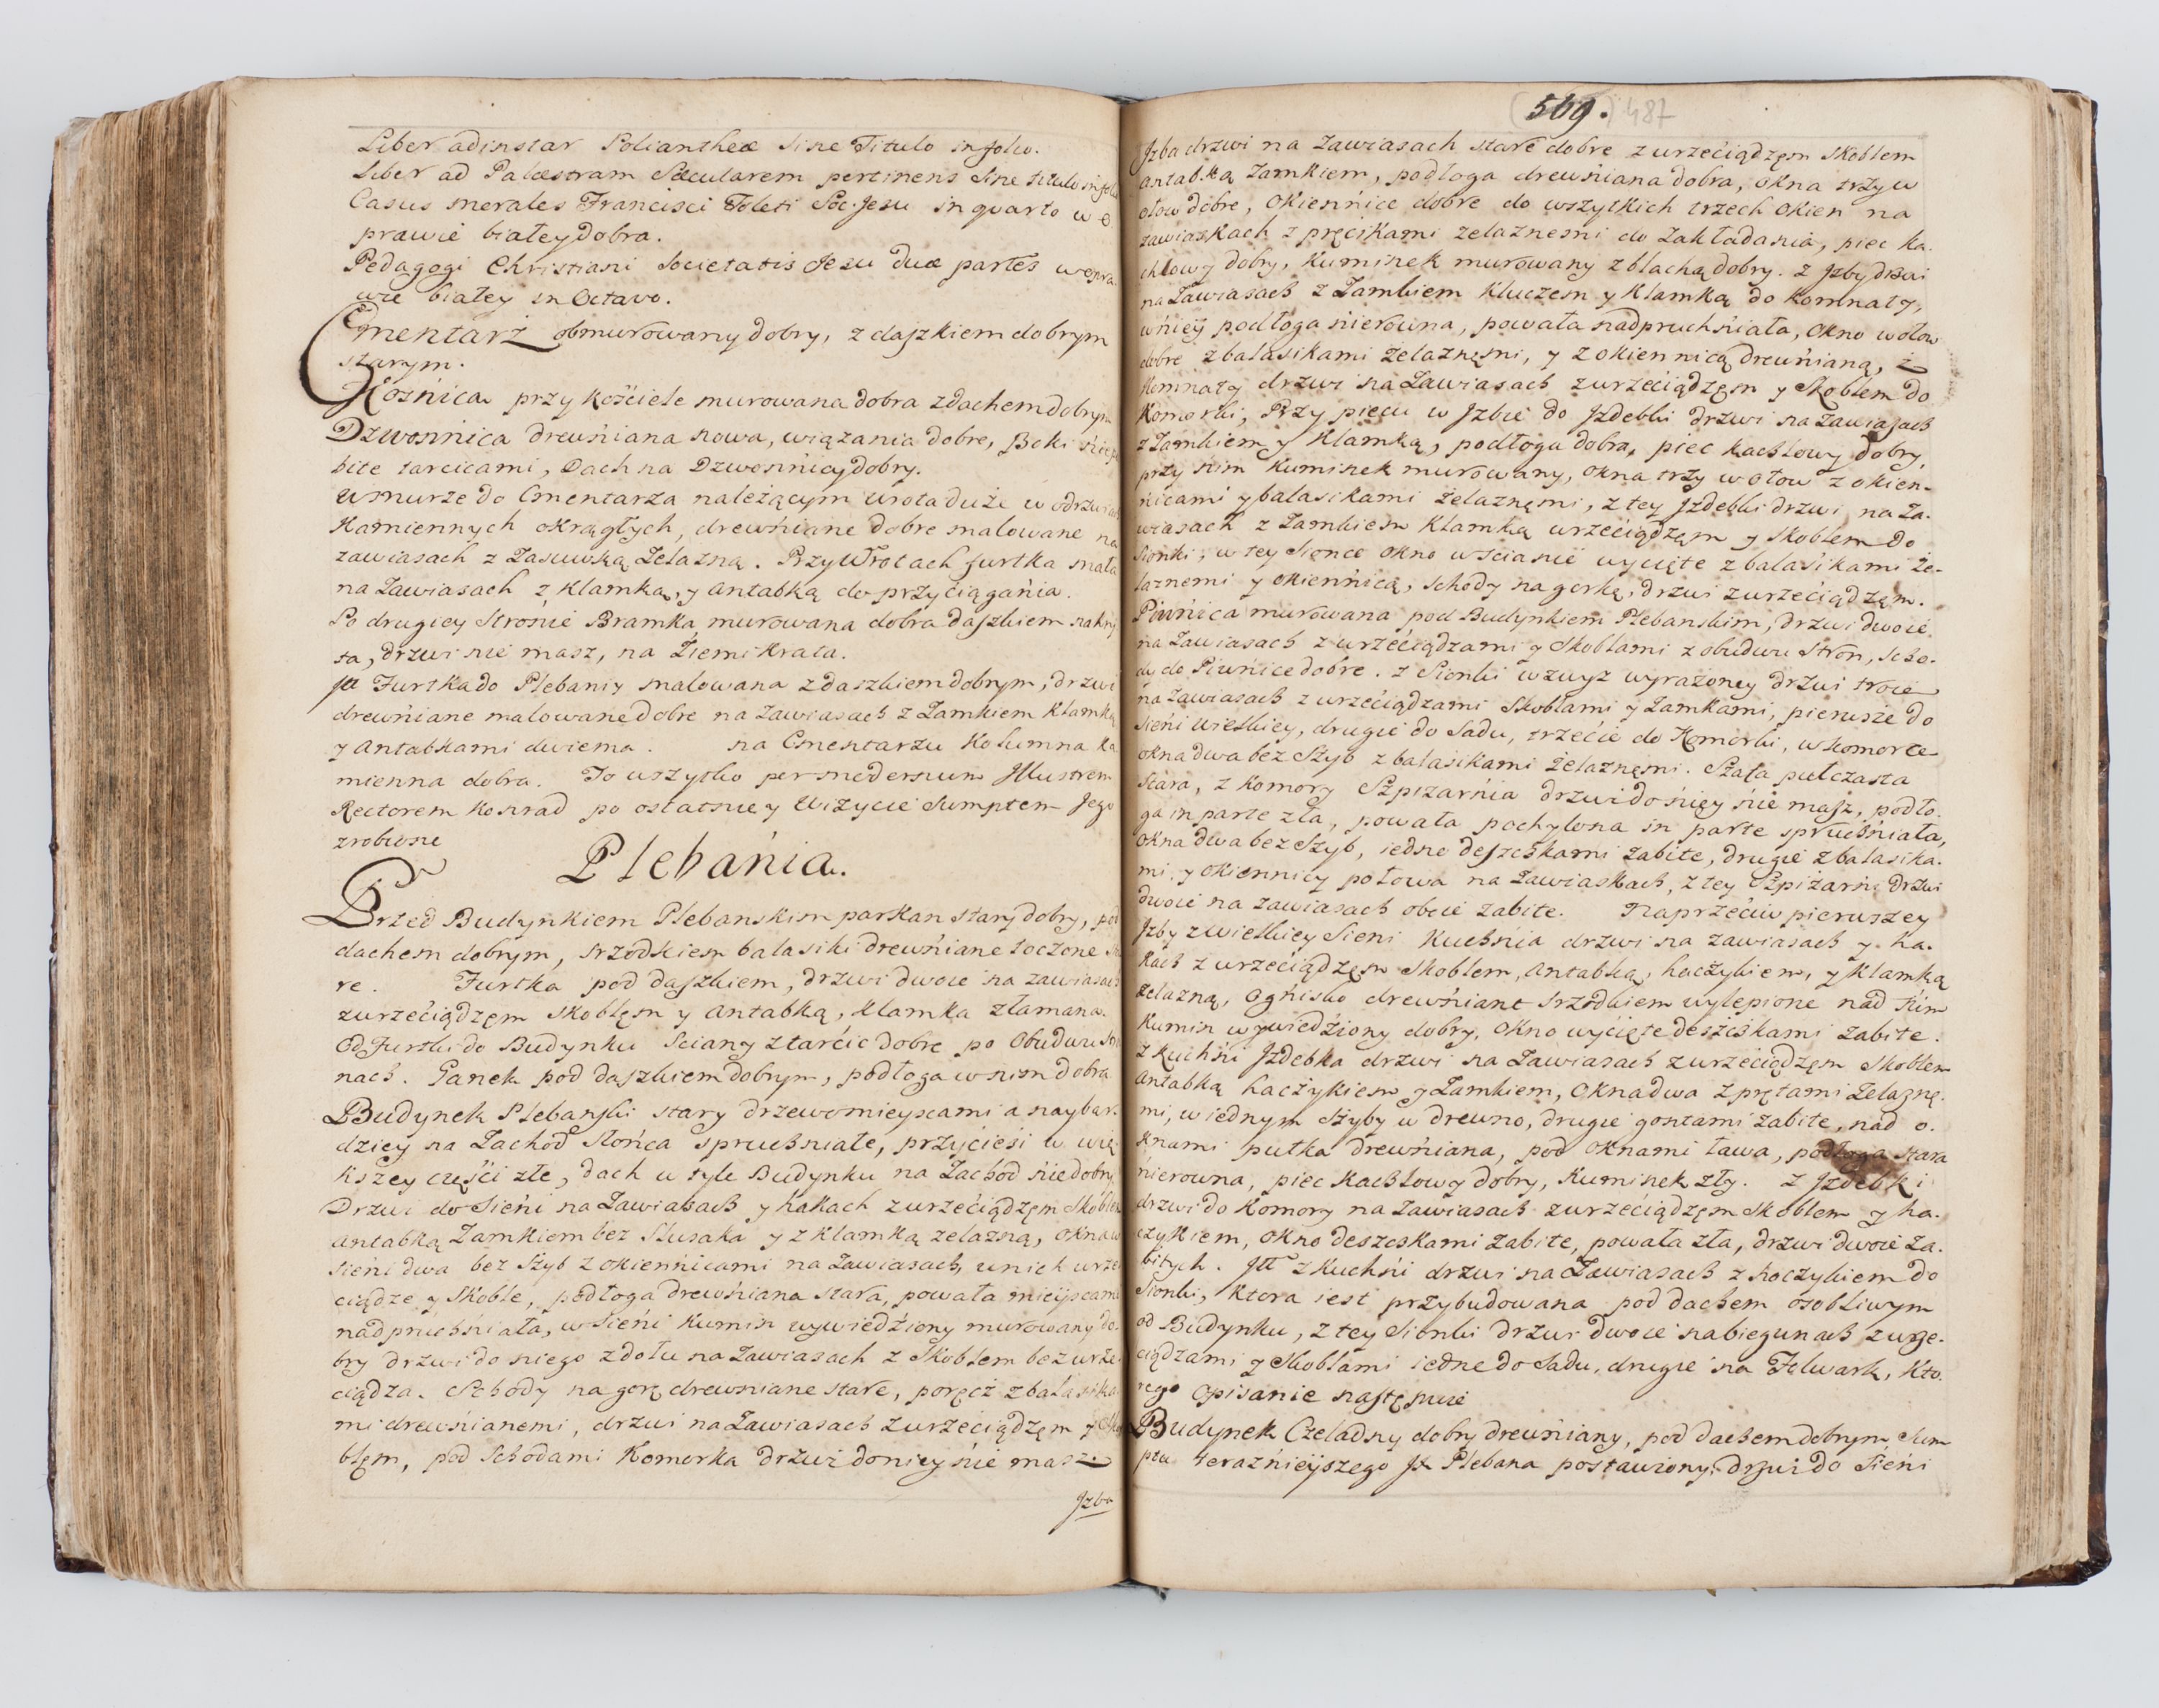 Liber adinstar Poliantheæ sine Titulo in folio.
Liber ad Palæstram Sæcularem pertinens sine titulo in folio
Casus morales Francisci Toleti Soc: Jesu in quarto w o
prawie białey dobra.
Pedagogi Christiani Societatis Jesu duæ partes w opra
wie białey in Octavo.
Cmentarz obmurowany dobry, z daszkiem dobrym
starym.
Kośnica przy kościele murowana dobra z dachem dobrym
Dzwonnica drewniana nowa, wiązania dobre, Boki
bite tarcicami, Dach na Dzwonnicy dobry.
W murze do Cmentarza należącym wrota duże w odrzwiach
Kamiennych okrągłych, drewniane dobre malowane na
zawiasach z Zasuwką Zelazną. Przy Wrotach furtka mała
na Zawiasach z Klamką, y antabką do przyciągania.
Po drugiey Stronie Bramka murowana dobra daszkiem nakry
ta, drzwi nie masz, na Ziemi Krata.
Jtt Furtka do Plebaniy malowana z daszkiem dobrym, drzwi
drewniane malowane dobre na Zawiasach z Zamkiem Klamką
y Antabkami dwiema. na Cmentarzu Kolumna Ka
mienna dobra. To wszytko per modernum Jllustrem
Rectorem Konrad po ostatniey Wizycie Sumptem Jego
zrobione
Plebania.
Przed Budynkiem Plebanskim parkan stary dobry, pod
dachem dobrym, srzodkiem balasiki drewniane toczone sta
re. Furtka pod daszkiem, drzwi dwoie na zawiasach
z urzeciądzęm skoblęm y antabką, klamka złamana.
Od Furtki do Budynku Sciany z tarcic dobre po Obudwu Stro
nach. Ganek pod daszkiem dobrym, podłoga w nim dobra
Budynek Plebanski stary drzewo mieyscami a naybar
dziey na Zachod Słońca spruchniałe, przyciesi w wię
kszey częsci złe, dach w tyle Budynku na Zachod nie dobry
Drzwi do Sieni na Zawiasach y hakach z urzeciądzęm Skoblem
antabką Zamkiem bez Slusaka y z klamką zelazną, okna w
sieni dwa bez szyb z okiennicami na Zawiasach, u nich urze
ciądze y Skoble, podłoga drewniana stara, powała mieyscami
nadpruchniała, w Sieni Kumin wywiedziony murowany do
bry drzwi do niego z dołu na Zawiasach z Skoblem bez urze
ciądza. Schody na gorę drewniane stare, poręcz z balasika
mi drewnianemi, drzwi na Zawiasach z urzeciądzęm y Sko
blęm, pod Schodami Komorka drzwi do niey nie masz.
Jzba
569. 487
Jzba drzwi na Zawiasach stare dobre z urzeciądzęm Skoblem
antabką Zamkiem, podłoga drewniana dobra, okna trzy w
ołow dobre, Okiennice dobre do wszytkich trzech Okien na
zawiaskach z pręcikami zelaznemi do Zakładania, piec ka
chlowy dobry, Kuminek murowany z blachą dobry. z Jzby drzwi
na Zawiasach z Zamkiem Kluczem y Klamką do Komnaty,
w niey podłoga nierowna, powała nadpruchniała, Okno w ołow
dobre z balasikami zelaznęmi, y z okiennicą drewnianą, z
Komnaty drzwi na Zawiasach z urzeciądzęm y Skoblem do
Komorki, Przy piecu w Jzbie do Jzdebki drzwi na Zawiasach
z Zamkiem y Klamką, podłoga dobra, piec kachlowy dobry,
przy nim Kuminek murowany, okna trzy w ołow z okien-
nicami y balasikami zelaznęmi, z tey Jzdebki drzwi na Za-
wiasach z Zamkiem Klamką urzeciądzęm y Skoblem do
Sionki, w tey Sionce okno w scianie wycięte z balasikami że-
laznemi y okiennicą, schody na gorkę, drzwi z urzeciądzęm.
Piwnica murowana pod Budynkiem Plebanskim, drzwi dwoie
na Zawiasach z urzeciądzami y Skoblami z obudwu Stron, scho-
dy do Piwnice dobre. z Sionki wzwyz wyrażoney drzwi troie
na Zawiasach z urzeciądzami Skoblami y Zamkami, pierwsze do
sieni wielkiey, drugie do Sadu, trzecie do Komorki, w komorce
okna dwa bez Szyb z balasikami żelaznęmi. Szafa pułczasta
Stara, z Komory Szpizarnia drzwi do niey nie masz, podło
ga in parte zła, powała pochylona in parte spruchniała,
okna dwa bez Szyb, iedno deszczkami zabite, drugie z balasika
mi, y okiennicy połowa na Zawiaskach, z tey Szpiżarni drzwi
dwoie na zawiasach oboie zabite. Naprzeciw pierwszey
Jzby z wielkiey Sieni Kuchnia drzwi na zawiasach y ha-
kach z urzeciądzęm Skoblem, antabką, haczykiem, y Klamką
zelazną, Ognisko drewniane srzodkiem wylepione nad nim
Kumin wywiedziony dobry, Okno wycięte deszczkami zabite.
z Kuchni Jzdebka drzwi na Zawiasach z urzeciądzęm Skoblem
Antabką haczykiem y Zamkiem, okna dwa z prętami Zelaznę
mi, w iednym szyby w drewno, drugie gontami zabite, nad o-
knami pułka drewniana, pod oknami ława, podłoga stara
nierowna, piec kachlowy dobry, Kuminek zły. z Jzdebki
drzwi do Komory na Zawiasach z urzeciądzęm Skoblem y ha-
czykiem, okno deszczkami zabite, powała zła, drzwi dwoie za-
bitych. Jtt z Kuchni drzwi na Zawiasach z haczykiem do
Sionki, ktora iest przybudowana pod dachem osobliwym
od Budynku, z tey Sionki drzwi dwoie na biegunach z urze-
ciądzami y Skoblami iedne do Sadu, drugie na Folwark, kto
rego opisanie następuie
Budynek Czeladny dobry drewniany, pod dachem dobrym Sum
ptu teraznieyszego Jx Plebana postawiony. drzwi do Sieni